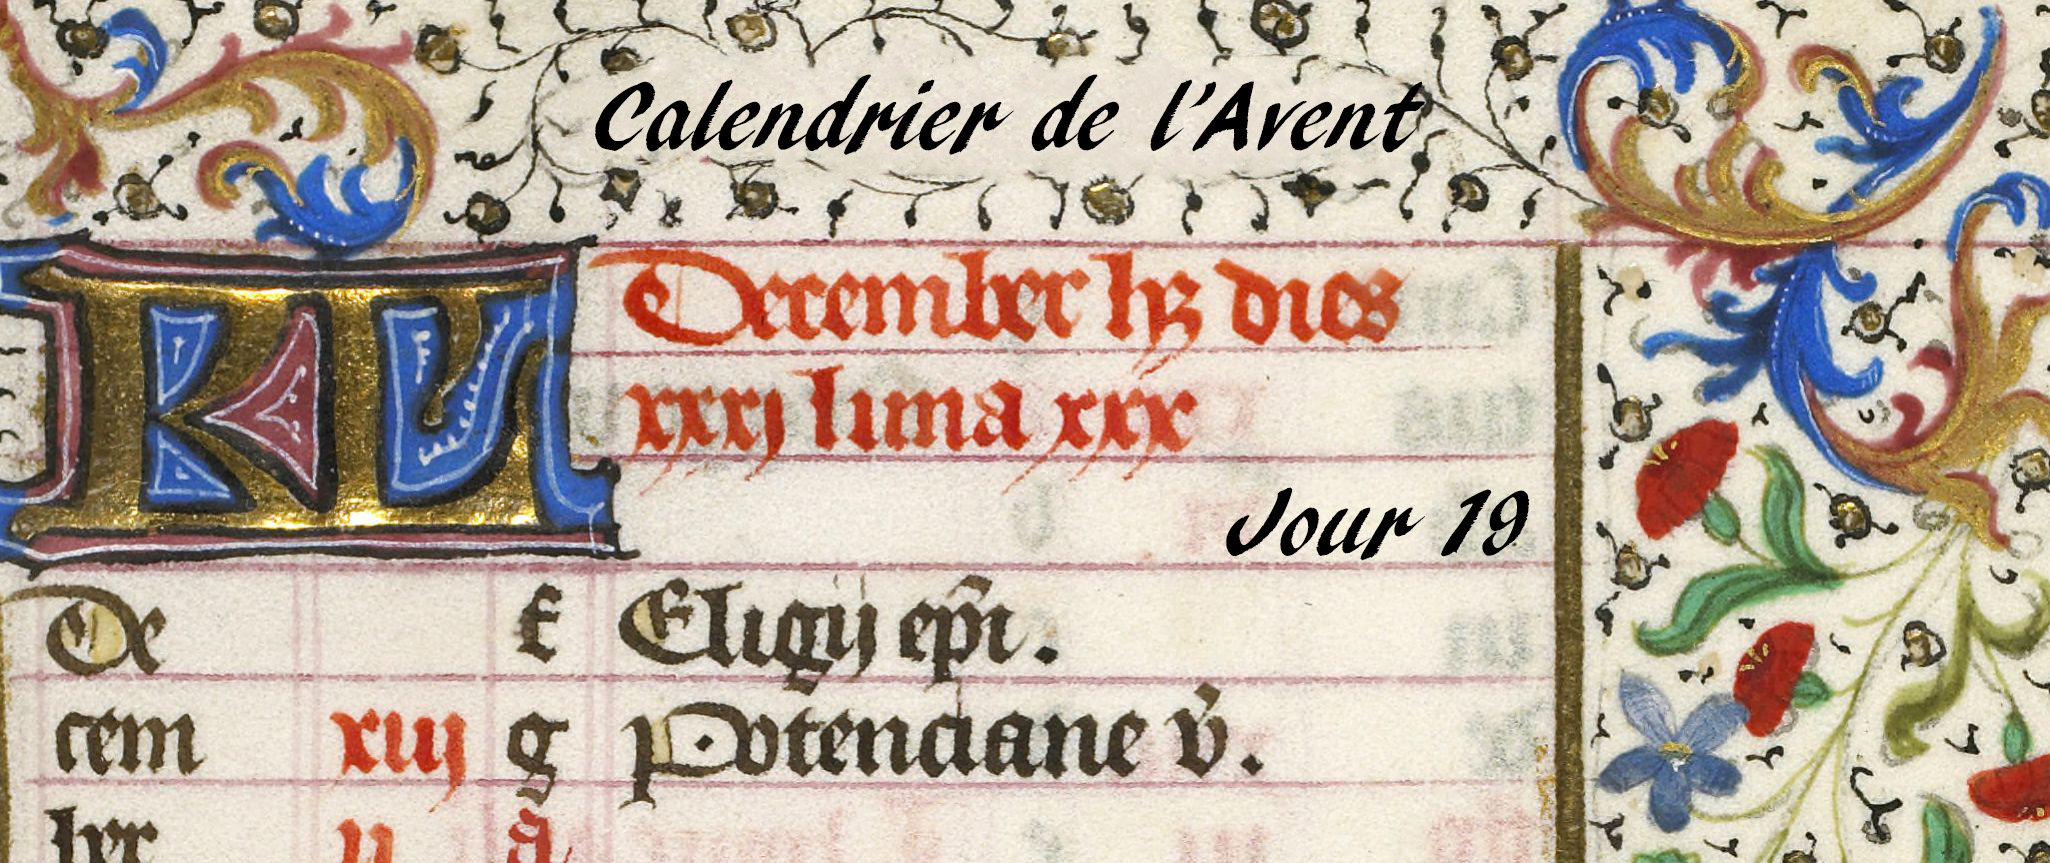 Calendrier de l'Avent
KL December hꝫ dies
xxxj luna xxx
Jour 19
De f Eligij ep̃i.
cem xiij g Potenciane v̄.